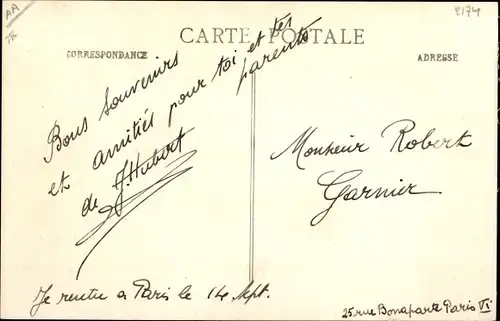 AA
TR
2174
CARTE POSTALE
CORRESPONDANCE
ADRESSE
Bons souvenirs
et amitiés pour toi et tes
parents
de J. Hubert
Monsieur Robert
Garnier
Je rentre à Paris le 14 Sept.
25 rue Bonaparte Paris VI